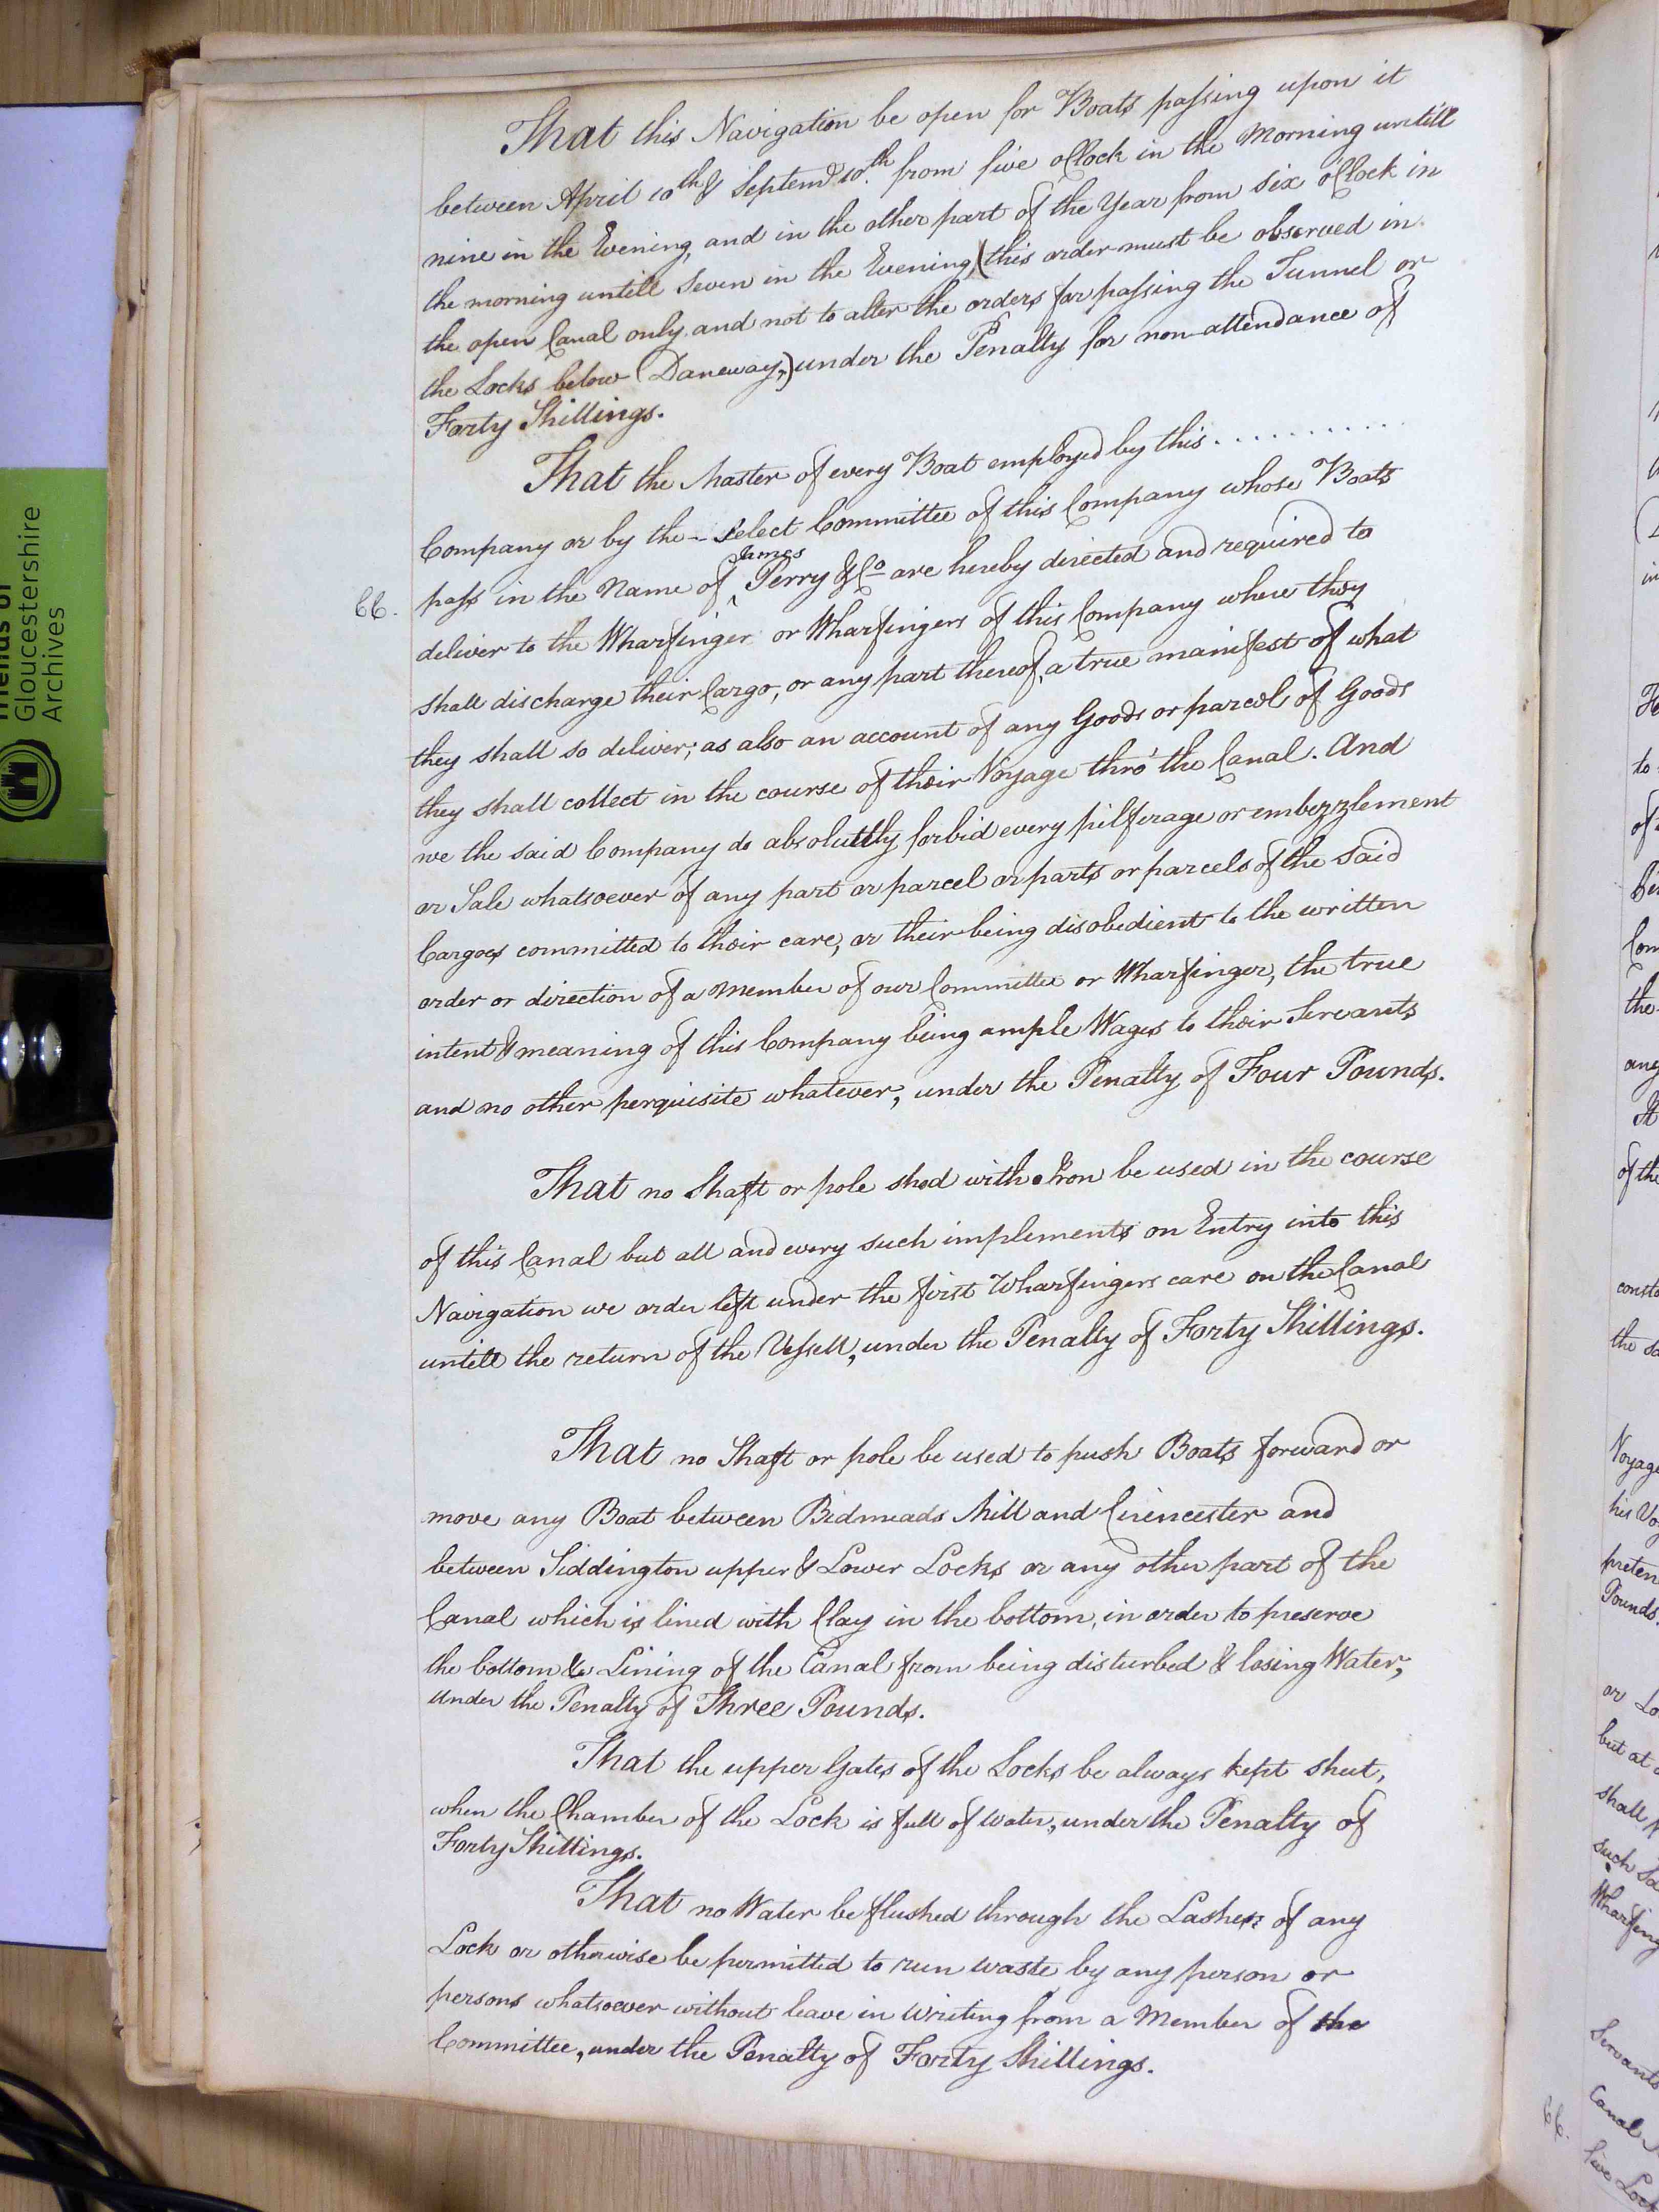 That this Navigation be open for Boats passing upon it
between April 10th & Septemr 10th from five oClock in the Morning untill
nine in the Evening, and in the other part of the Year from six o'Clock in
the morning untill Seven in the Evening, (this order must be observed in
the open Canal only and not to alter the orders for passing the Tunnel or
the Locks below Daneway,) under the Penalty for non-attendance of
Forty Shillings.
That the Master of every Boat employed by this
Company or by the Select Committee of this Company whose Boats
James
66. pass in the Name of ‸ Perry & Co are hereby directed and required to
deliver to the Wharfinger or Wharfingers of this Company where they
shall discharge their Cargo, or any part thereof, a true manifest of what
they shall so deliver; as also an account of any Goods or parcels of Goods
they shall collect in the course of their Voyage thro' the Canal. And
we the said Company do absolutely forbid every pilferage or embezzlement
or Sale whatsoever of any part or parcel or parts or parcels of the said
Cargoes committed to their care, or their being disobedient to the written
order or direction of a Member of our Committee or Wharfinger, the true
intent & meaning of this Company being ample Wages to their Servants
and no other perquisite whatever, under the Penalty of Four Pounds.
That no Shaft or pole shod with Iron be used in the course
of this Canal but all and every such implements on Entry into this
Navigation we order left under the first Wharfingers care on the Canal
untill the return of the Vessell, under the Penalty of Forty Shillings.
That no Shaft or pole be used to push Boats forward or
move any Boat between Bidmeads Mill and Cirencester and
between Siddington upper & Lower Locks or any other part of the
Canal which is lined with Clay in the bottom, in order to preserve
the bottom & Lining of the Canal from being disturbed & losing Water,
under the Penalty of Three Pounds.
That the upper Gates of the Locks be always kept shut,
when the Chamber of the Lock is full of water, under the Penalty of
Forty Shillings.
That no Water be flushed through the Lashes of any
Lock or otherwise be permitted to run waste by any person or
persons whatsoever without leave in Writing from a Member of the
Committee, under the Penalty of Forty Shillings.
Friends of
Gloucestershire
Archives
to
of
Com
the
any
of the
the
Voyage
his
Pounds.
or
but at
shall
such
Servants
Canal
66.